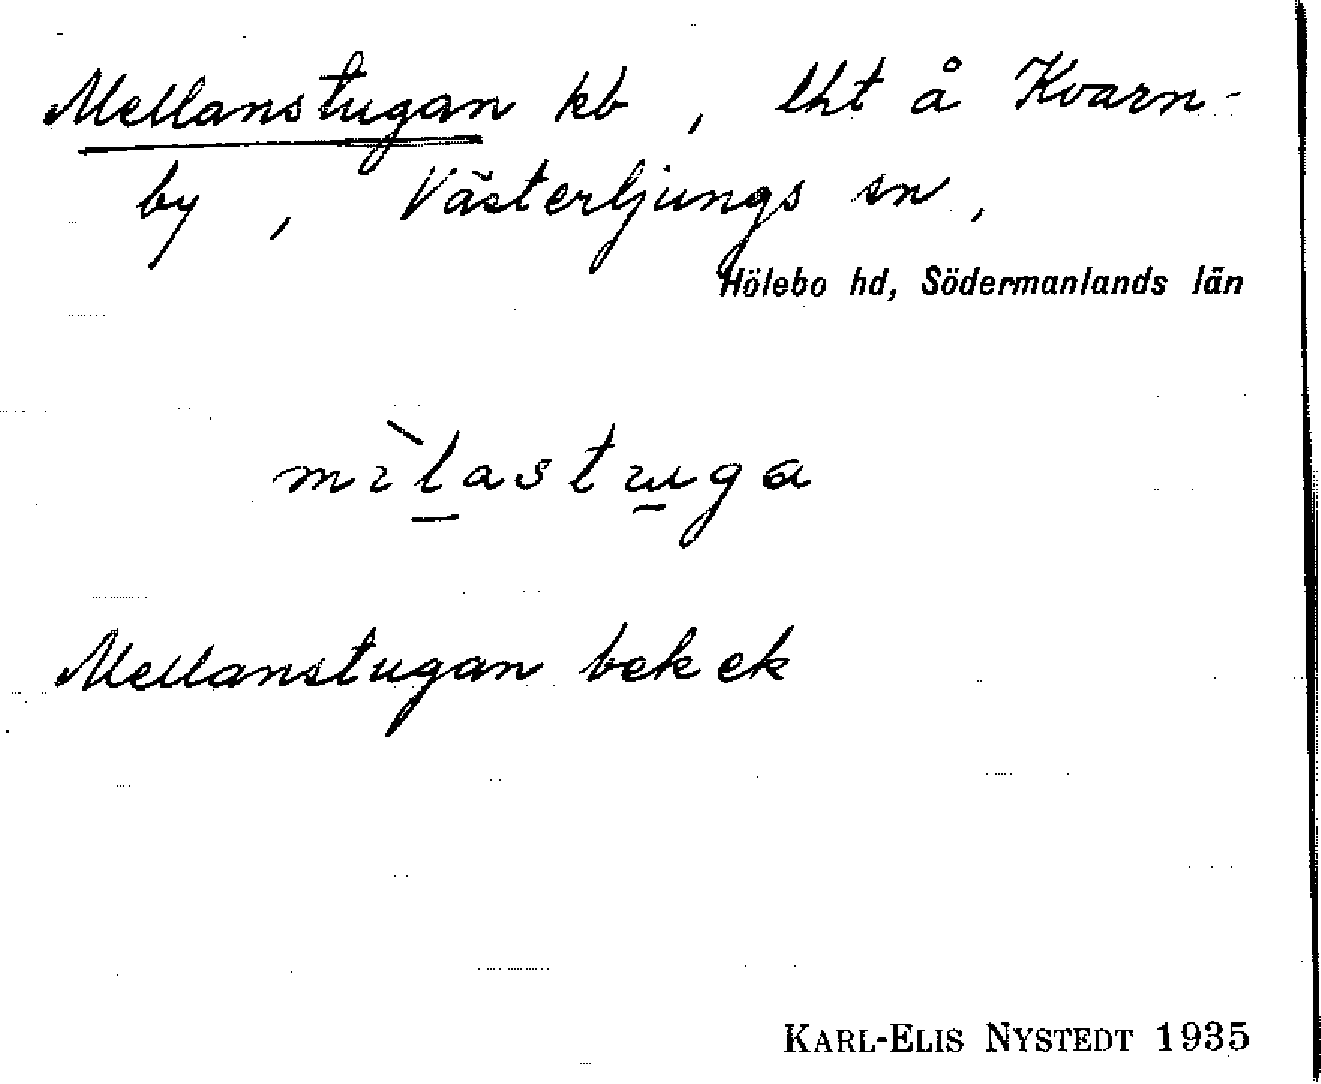 Mellanstugan kb, lht å Kvarn-
by, Västerljungs sn,
Hölebo hd, Södermanlands län
mìlastuga
Mellanstugan bek ek
KARL-ELIS NYSTEDT 1935